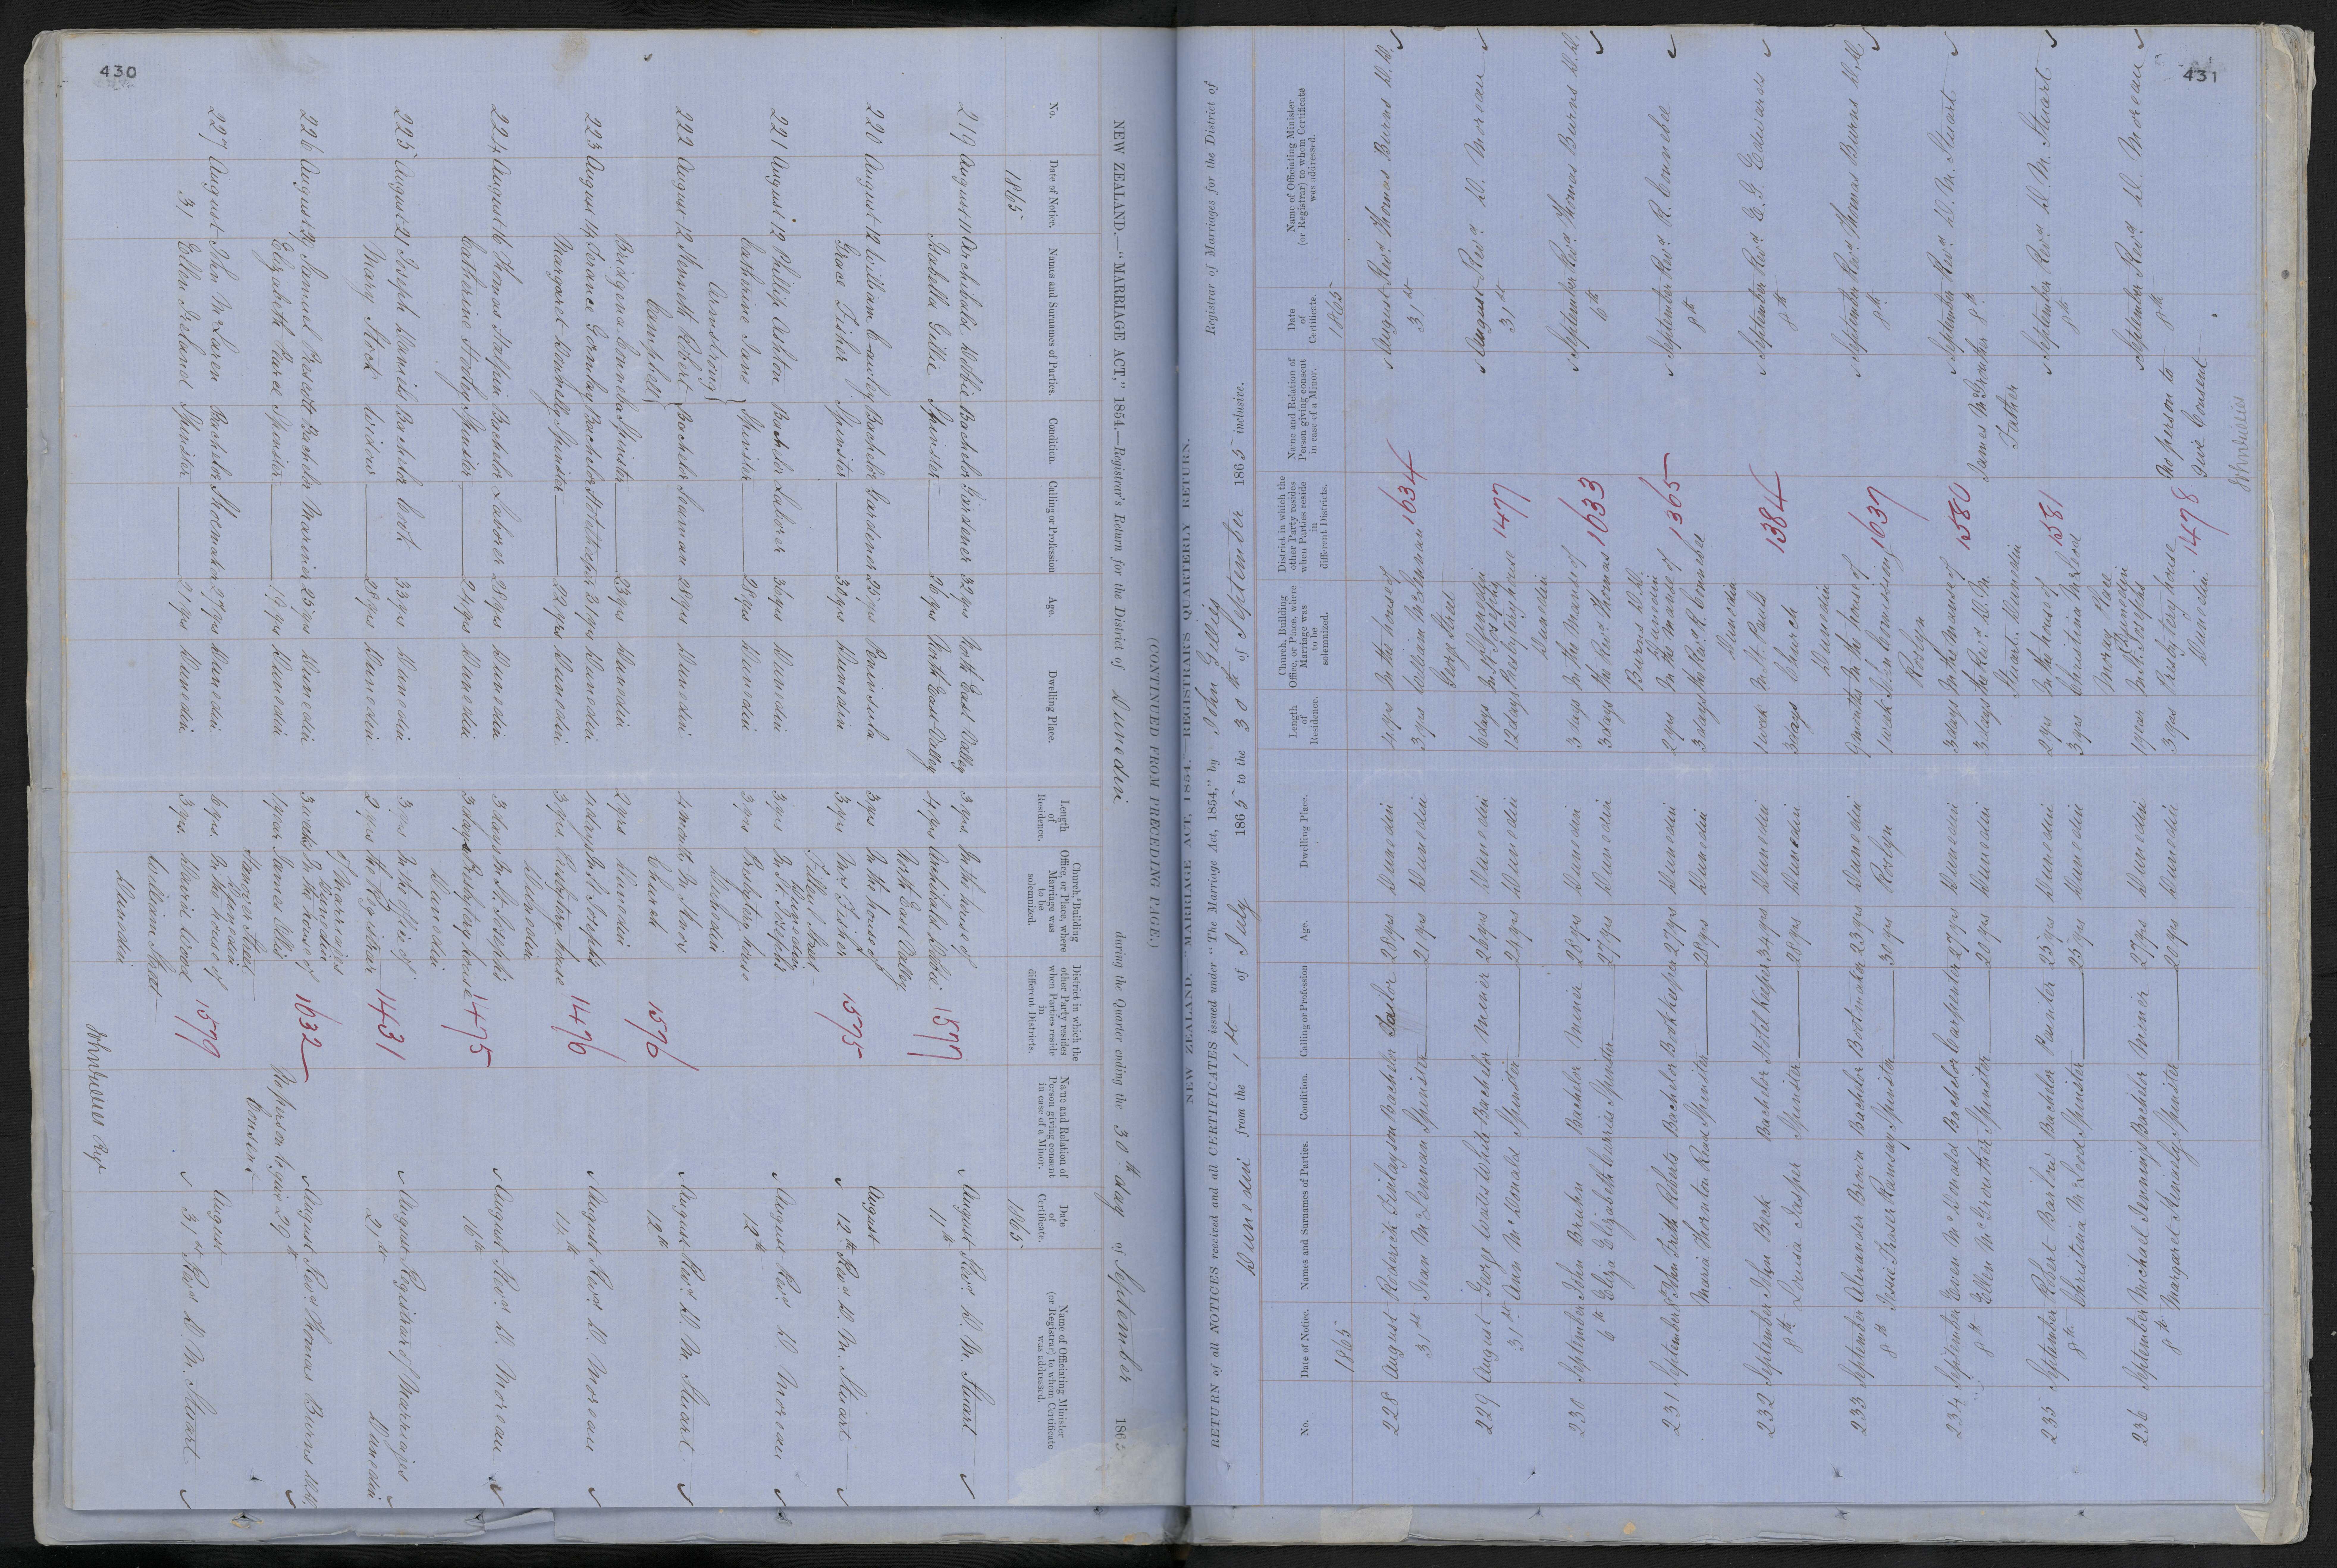 430
NEW ZEALAND.—"MARRIAGE ACT," 1854.—Registrar's Return for the District of Dunedin during the Quarter ending the 30th day of September 1865
(CONTINUED FROM PRECEDING PAGE.)
No. Date of Notice. Names and Surnames of Parties. Condition. Calling or Profession Age. Dwelling Place. Length of Residence. Church, Building Office, or Place, where Marriage was to be solemnized. District in which the other Party resides when Parties reside in different Districts. Name and Relation of Person giving consent in case of a Minor. Date of Certificate. Name of Officiating Minister (or Registrar) to whom Certificate was addressed.
1865 1865
219 August 11 Archibald Dobbie Bachelor Gardener 32 yrs North East Valley 3 yrs In the house of 1577 August 11th Revd. D. M. Stuart
Isabella Gillie Spinster 26 yrs North East Valley 4 yrs Archibald Dobbie
North East Valley
220 August 12 William Cauley Bachelor Gardener 25 yrs Peninsula 3 yrs In the house of 1575 August 12th Revd. D. M. Stuart
Grace Fisher Spinster 30 yrs Dunedin 3 yrs Mrs Fisher
Filleul Street
Dunedin
221 August 12 Phillip Ashton Bachelor Laborer 36 yrs Dunedin 3 yrs In St. Joseph's August 12th Revd. D. Moreau
Catherine Jane Armstrong Spinster 28 yrs Dunedin 3 yrs Presbytery house
Dunedin
222 August 12 Kenneth Robert Campbell Bachelor Seaman 28 yrs Dunedin 4 month In Knox 1576 August 12th Revd. D. M. Stuart
Church
Bridgena Spinster 23 yrs Dunedin 2 yrs Dunedin
223 August 14 Bachelor 31 yrs Dunedin 4 days In St. Joseph's 1476 August 14th Revd. D. Moreau
Margaret Donnelly Spinster 22 yrs Dunedin 3 yrs Presbytery house
Dunedin
224 August 16 Thomas Halpin Bachelor Laborer 28 yrs Dunedin 3 days In St. Joseph's 1475 August 16th Revd. D. Moreau
Catherine Spinster 24 yrs Dunedin 3 days Presbytery house
Dunedin
225 August 21 Joseph Daniels Bachelor Cook 33 yrs Dunedin 3 yrs In the office of 1431 August 21st Registrar of Marriages
Mary Stock Widow 28 yrs Dunedin 2 yrs the Registrar Dunedin
of Marriages
Dunedin
226 August 29 Samuel Bachelor Mariner 25 yrs Dunedin 3 weeks In the house of 1632 No person to give Consent August 29th Revd. Thomas Burns D.D.
Elizabeth Spinster 19 yrs Dunedin 1 year James
Hanover Street
Dunedin
227 August 31 John McLaren Bachelor Shoemaker 27 yrs Dunedin 6 yrs In the house of 1579 August 31st Revd. D. M. Stuart
Ellen Ireland Spinster 21 yrs Dunedin 3 yrs David Wood
William Street
Dunedin
John Gillies Regr
431
NEW ZEALAND. "MARRIAGE ACT, 1854.—REGISTRAR'S QUARTERLY RETURN.
RETURN of all NOTICES received and all CERTIFICATES issued under "The Marriage Act, 1854," by John Gillies Registrar of Marriages for the District of
Dunedin from the 1st of July 1865 to the 30th of September 1865 inclusive.
No. Date of Notice. Names and Surnames of Parties. Condition. Calling or Profession Age. Dwelling Place. Length of Residence. Church, Building Office, or Place, where Marriage was to be solemnized. District in which the other Party resides when Parties reside in different Districts. Name and Relation of Person giving consent in case of a Minor. Date of Certificate. Name of Officiating Minister (or Registrar) to whom Certificate was addressed.
1865 1865
228 August 31st Roderick Finlayson Bachelor Tailor 28 yrs Dunedin 4 yrs In the house of 1634 August 31st Revd. Thomas Burns D.D.
Jean McLennan Spinster 21 yrs Dunedin 3 yrs William McLennan
George Street
Dunedin
229 August 31st George White Bachelor Miner 26 yrs Dunedin 6 days In St. Joseph's 1477 August 31st Revd. D. Moreau
Ann McDonald Spinster 24 yrs Dunedin 12 days Presbytery house
Dunedin
230 September 6th John Bachelor Miner 28 yrs Dunedin 3 days In the Manse of 1633 September 6th Revd. Thomas Burns D.D.
Eliza Elizabeth Currie Spinster 27 yrs Dunedin 3 days the Revd. Thomas
Burns D.D.
Dunedin
231 September 8th John Frith Roberts Bachelor Bookkeeper 27 yrs Dunedin 2 yrs In the Manse of 1365 September 8th Revd. R. Connebee
Maria Thornton Read Spinster 28 yrs Dunedin 3 days the Revd. R. Connebee
Dunedin
232 September 8th John Beck Bachelor Hotel Keeper 34 yrs Dunedin 1 week In St. Pauls 1384 September 8th Revd. E. G. Edwards
Louisa Jasper Spinster 28 yrs Dunedin 3 days Church
Dunedin
233 September 8th Alexander Brown Bachelor Bootmaker 23 yrs Dunedin 9 months In the house of 1637 September 8th Revd. Thomas Burns D.D.
Jessie Fraser Ramsay Spinster 30 yrs Roslyn 1 week John
Roslyn
234 September 8th Even McDonald Bachelor Carpenter 27 yrs Dunedin 3 days In the Manse of 1580 James McGrouther Father September 8th Revd. D. M. Stuart
Ellen McGrouther Spinster 20 yrs Dunedin 3 days the Revd. D. M.
Stuart, Dunedin
235 September 8th Robert Barlow Bachelor Painter 25 yrs Dunedin 2 yrs In the house of 1581 September 8th Revd. D. M. Stuart
Christina McLeod Spinster 25 yrs Dunedin 3 yrs Christina McLeod
Moray Place
Dunedin
236 September 8th Michael Jennings Bachelor Miner 27 yrs Dunedin 1 year In St. Josephs 1478 No person to give Consent September 8th Revd. D. Moreau
Margaret Spinster 20 yrs Dunedin 3 yrs Presbytery house
Dunedin
John Gillies